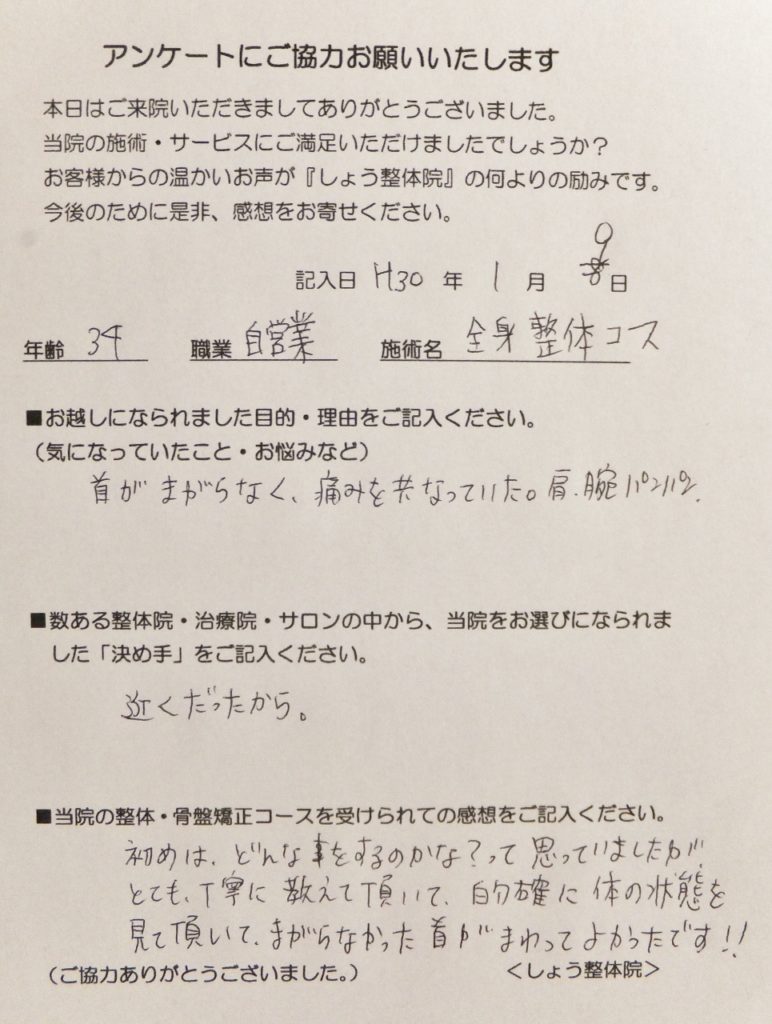 アンケートにご協力お願いいたします
本日はご来院いただきましてありがとうございました。
当院の施術・サービスにご満足いただけましたでしょうか?
お客様からの温かいお声が『しょう整体院』の何よりの励みです。
今後のために是非、感想をお寄せください。
記入日 H30 年 1 月 9日
年齢 34 職業 自営業 施術名 全身整体コース
■お越しになられました目的・理由をご記入ください。
(気になっていたこと・お悩みなど)
首がまがらなく、痛みを共なっていた。肩、腕パンパン。
■数ある整体院・治療院・サロンの中から、当院をお選びになられま
した「決め手」をご記入ください。
近くだったから。
■当院の整体・骨盤矯正コースを受けられての感想をご記入ください。
初めは、どんな事をするのかな?って思っていましたが、
とても、丁寧に教えて頂いて、的確に体の状態を
見て頂いて、まがらなかった首がまわってよかったです!!
(ご協力ありがとうございました。) <しょう整体院>